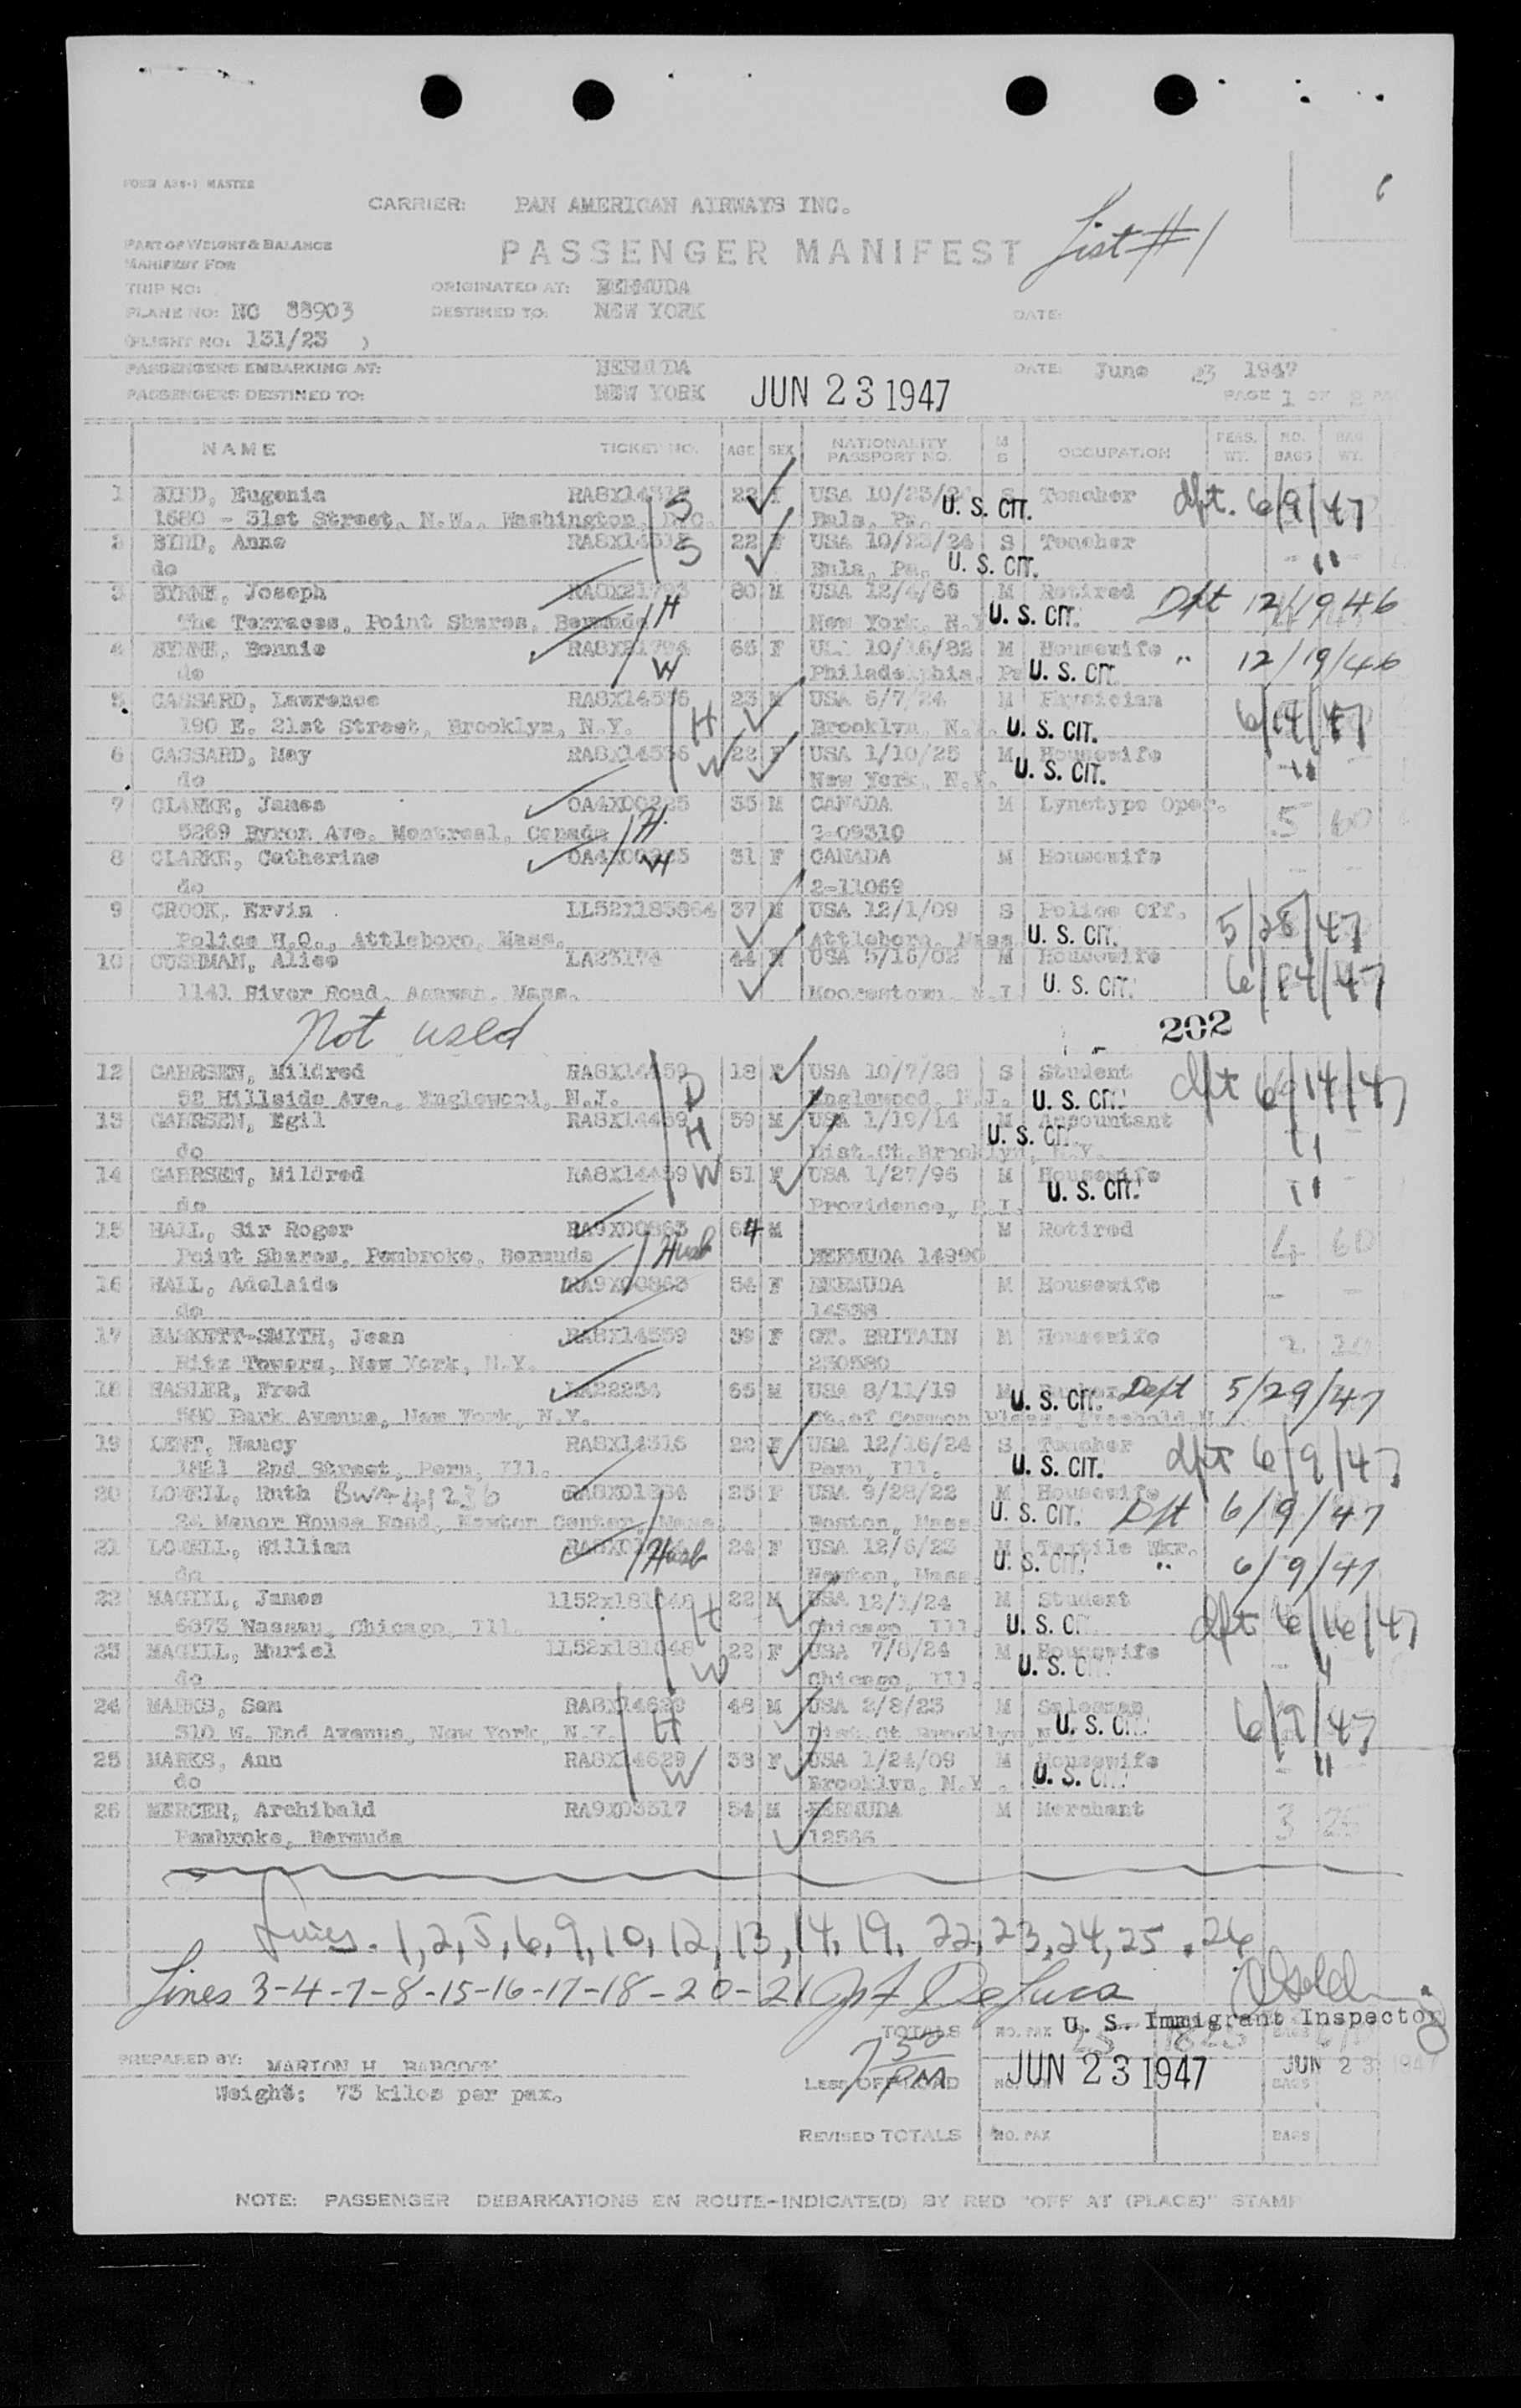 FORM A
MASTER
CARRIER: PAN AMERICAN AIRWAYS INC.
PART OF WEIGHT & BALANCE
MANIFEST FOR
PASSENGER MANIFEST List #1
TRIP NO: ORIGINATED AT: BERMUDA
PLANE NO: NC 88903 DESTINED TO: NEW YORK DATE:
(FLIGHT NO: 131/23 )
PASSENGERS EMBARKING AT: BERMUDA DATE: June 23 1947
PASSENGERS DESTINED TO: NEW YORK JUN 23 1947 PAGE 1 OF
NAME TICKET NO. AGE SEX NATIONALITY PASSPORT NO. M S OCCUPATION PERS. WT. NO. BAGS BAG WT.
1 BIRD, Eugenia 22 F USA S Teacher dft. 6/9/47
1680 - 31st Street, N.W., Washington, S Pa. U. S. CIT.
2 BIRD, Anne 22 F USA S Teacher "
do S Pa. U. S. CIT.
3 BYRNE, Joseph 80 M USA 12/4/66 M Retired Dft 12/19/46
The Terraces, Point Shares, Bermuda H New York, N.Y. U. S. CIT.
4 BYRNE, Bonnie 65 F 10/16/82 M Housewife " 12/19/46
do W Philadelphia, Pa U. S. CIT.
5 Lawrence 23 M USA 6/7/24 M Physician 6/14/47
190 E. 21st Street, Brooklyn, N.Y. H Brooklyn, N.Y. U. S. CIT.
6 May 22 F USA 1/10/25 M Housewife "
do W New York, N.Y. U. S. CIT.
7 CLARKE, James 35 M CANADA M Lynotype Oper. 5 60
5269 Byron Ave. Montreal, Canada H
8 CLARKE, Catherine 31 F CANADA M Housewife
do W 2-11069
9 CROOK, Ervin 37 M USA 12/1/09 S Police Off. 5/28/47
Police H.Q., Attleboro, Mass. Attleboro, Mass U. S. CIT.
10 CUSHMAN, Alice LA23174 44 USA 5/16/02 M Housewife 6/14/47
1141 River Road, Agawam, Mass. Moorestown, N.J. U. S. CIT.
Not used 202
12 Mildred 18 F USA S Student dft 6/14/47
52 Hillside Ave., Englewood, N.J. D Englewood, N.J. U. S. CIT.
13 Egil 59 M USA 1/19/14 M Accountant "
do H Dist.Ct.Brooklyn, N.Y. U. S. CIT.
14 Mildred W 51 F USA 1/27/96 M Housewife "
do Providence, R.I. U. S. CIT.
15 HALL, Sir Roger RA9X00863 64 M M Retired 4 60
Point Shares, Pembroke, Bermuda Husb BERMUDA 14890
16 HALL, Adelaide RA9X00863 54 F BERMUDA M Housewife
do
17 Jean RA8X14559 39 F GT. BRITAIN M Housewife 2
Ritz Towers, New York, N.Y. 250580
18 HASLER, Fred LA22254 65 M USA 8/11/19 M Dept 5/29/47
Park Avenue, New York, N.Y. Ct.of Common Pleas, Freehold U. S. CIT.
19 LENT, Nancy RA8X14316 22 F USA 12/16/24 S Teacher dft 6/9/47
1821 2nd Street, Peru, Ill. Peru, Ill. U. S. CIT.
20 LOWELL, Ruth 25 F USA 9/28/22 M Housewife Dft 6/9/47
24 Manor House Road, Newton Center, Mass. Boston, Mass. U. S. CIT.
21 LOWELL, William Husb 24 F USA 12/6/23 M Textile Wkr. " 6/9/47
do Newton, Mass. U. S. CIT.
22 MAGILL, James 22 M USA 12/1/24 M Student dft 6/16/47
6673 Nassau, Chicago, Ill. H Chicago, Ill. U. S. CIT.
23 MAGILL, Muriel LL52x181048 22 F USA 7/8/24 M Housewife "
do W Chicago, Ill. U. S. CIT.
24 MARKS, Sam RA8X14629 48 M USA 2/8/23 M Salesman 6/9/47
310 W. End Avenue, New York, N.Y. H Dist.Ct Brooklyn U. S. CIT.
25 MARKS, Ann RA8X14629 38 F USA 1/24/09 M Housewife "
do W Brooklyn, N.Y. U. S. CIT.
26 MERCER, Archibald RA9X03317 54 M BERMUDA M Merchant 3 25
Pembroke, Bermuda
Lines. 1, 2, 5, 6, 9, 10, 12, 13, 14, 19, 22, 23, 24, 25, 26
Lines 3-4-7-8-15-16-17-18-20-21 DeLuca
U. S. Immigrant Inspector
TOTALS NO. PAX 25 BAGS
PREPARED BY: MARION H. BABCOCK 7 50 PM JUN 23 1947 JUN 23 1947
Weight: 75 kilos per pax. LESS OFF LOAD BAGS
REVISED TOTALS NO. PAX BAGS
NOTE: PASSENGER DEBARKATIONS EN ROUTE-INDICATE(D) BY RED "OFF AT (PLACE)" STAMP